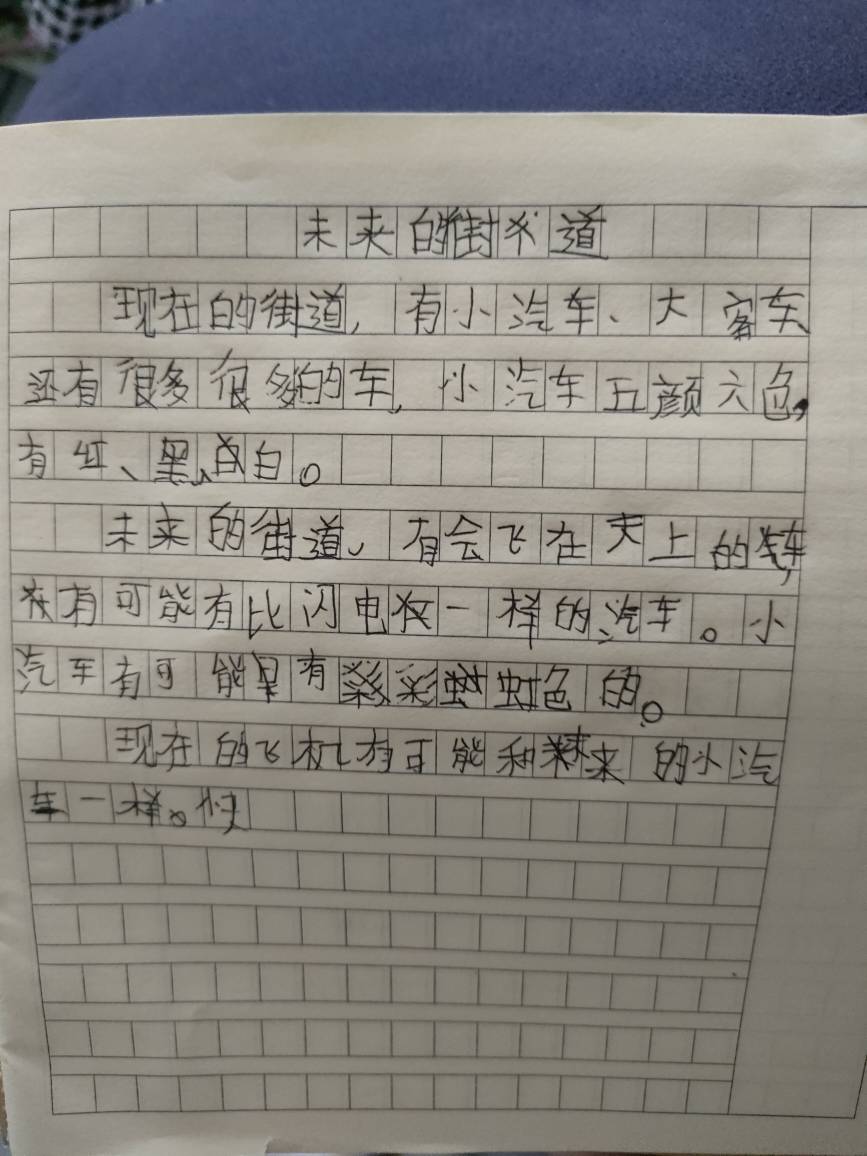 未来的街道
现在的街道，有小汽车、大客车
还有很多很多的车，小汽车五颜六色，
有红、黑、白。
未来的街道、有会飞在天上的汽车，
有可能有比闪电一样的汽车。小
汽车有可能是有彩虹色的。
现在的飞机有可能和未来的小汽
车一样。快